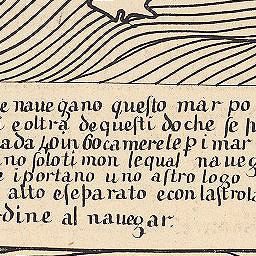 e nauegano questo mar po
i e oltra de questi doche se p
ada 40 in 60 camere le p i mar
no solo timon le qual naueg
e i portano uno astrologo
alto e separato e con lastrola
dine al nauegar.